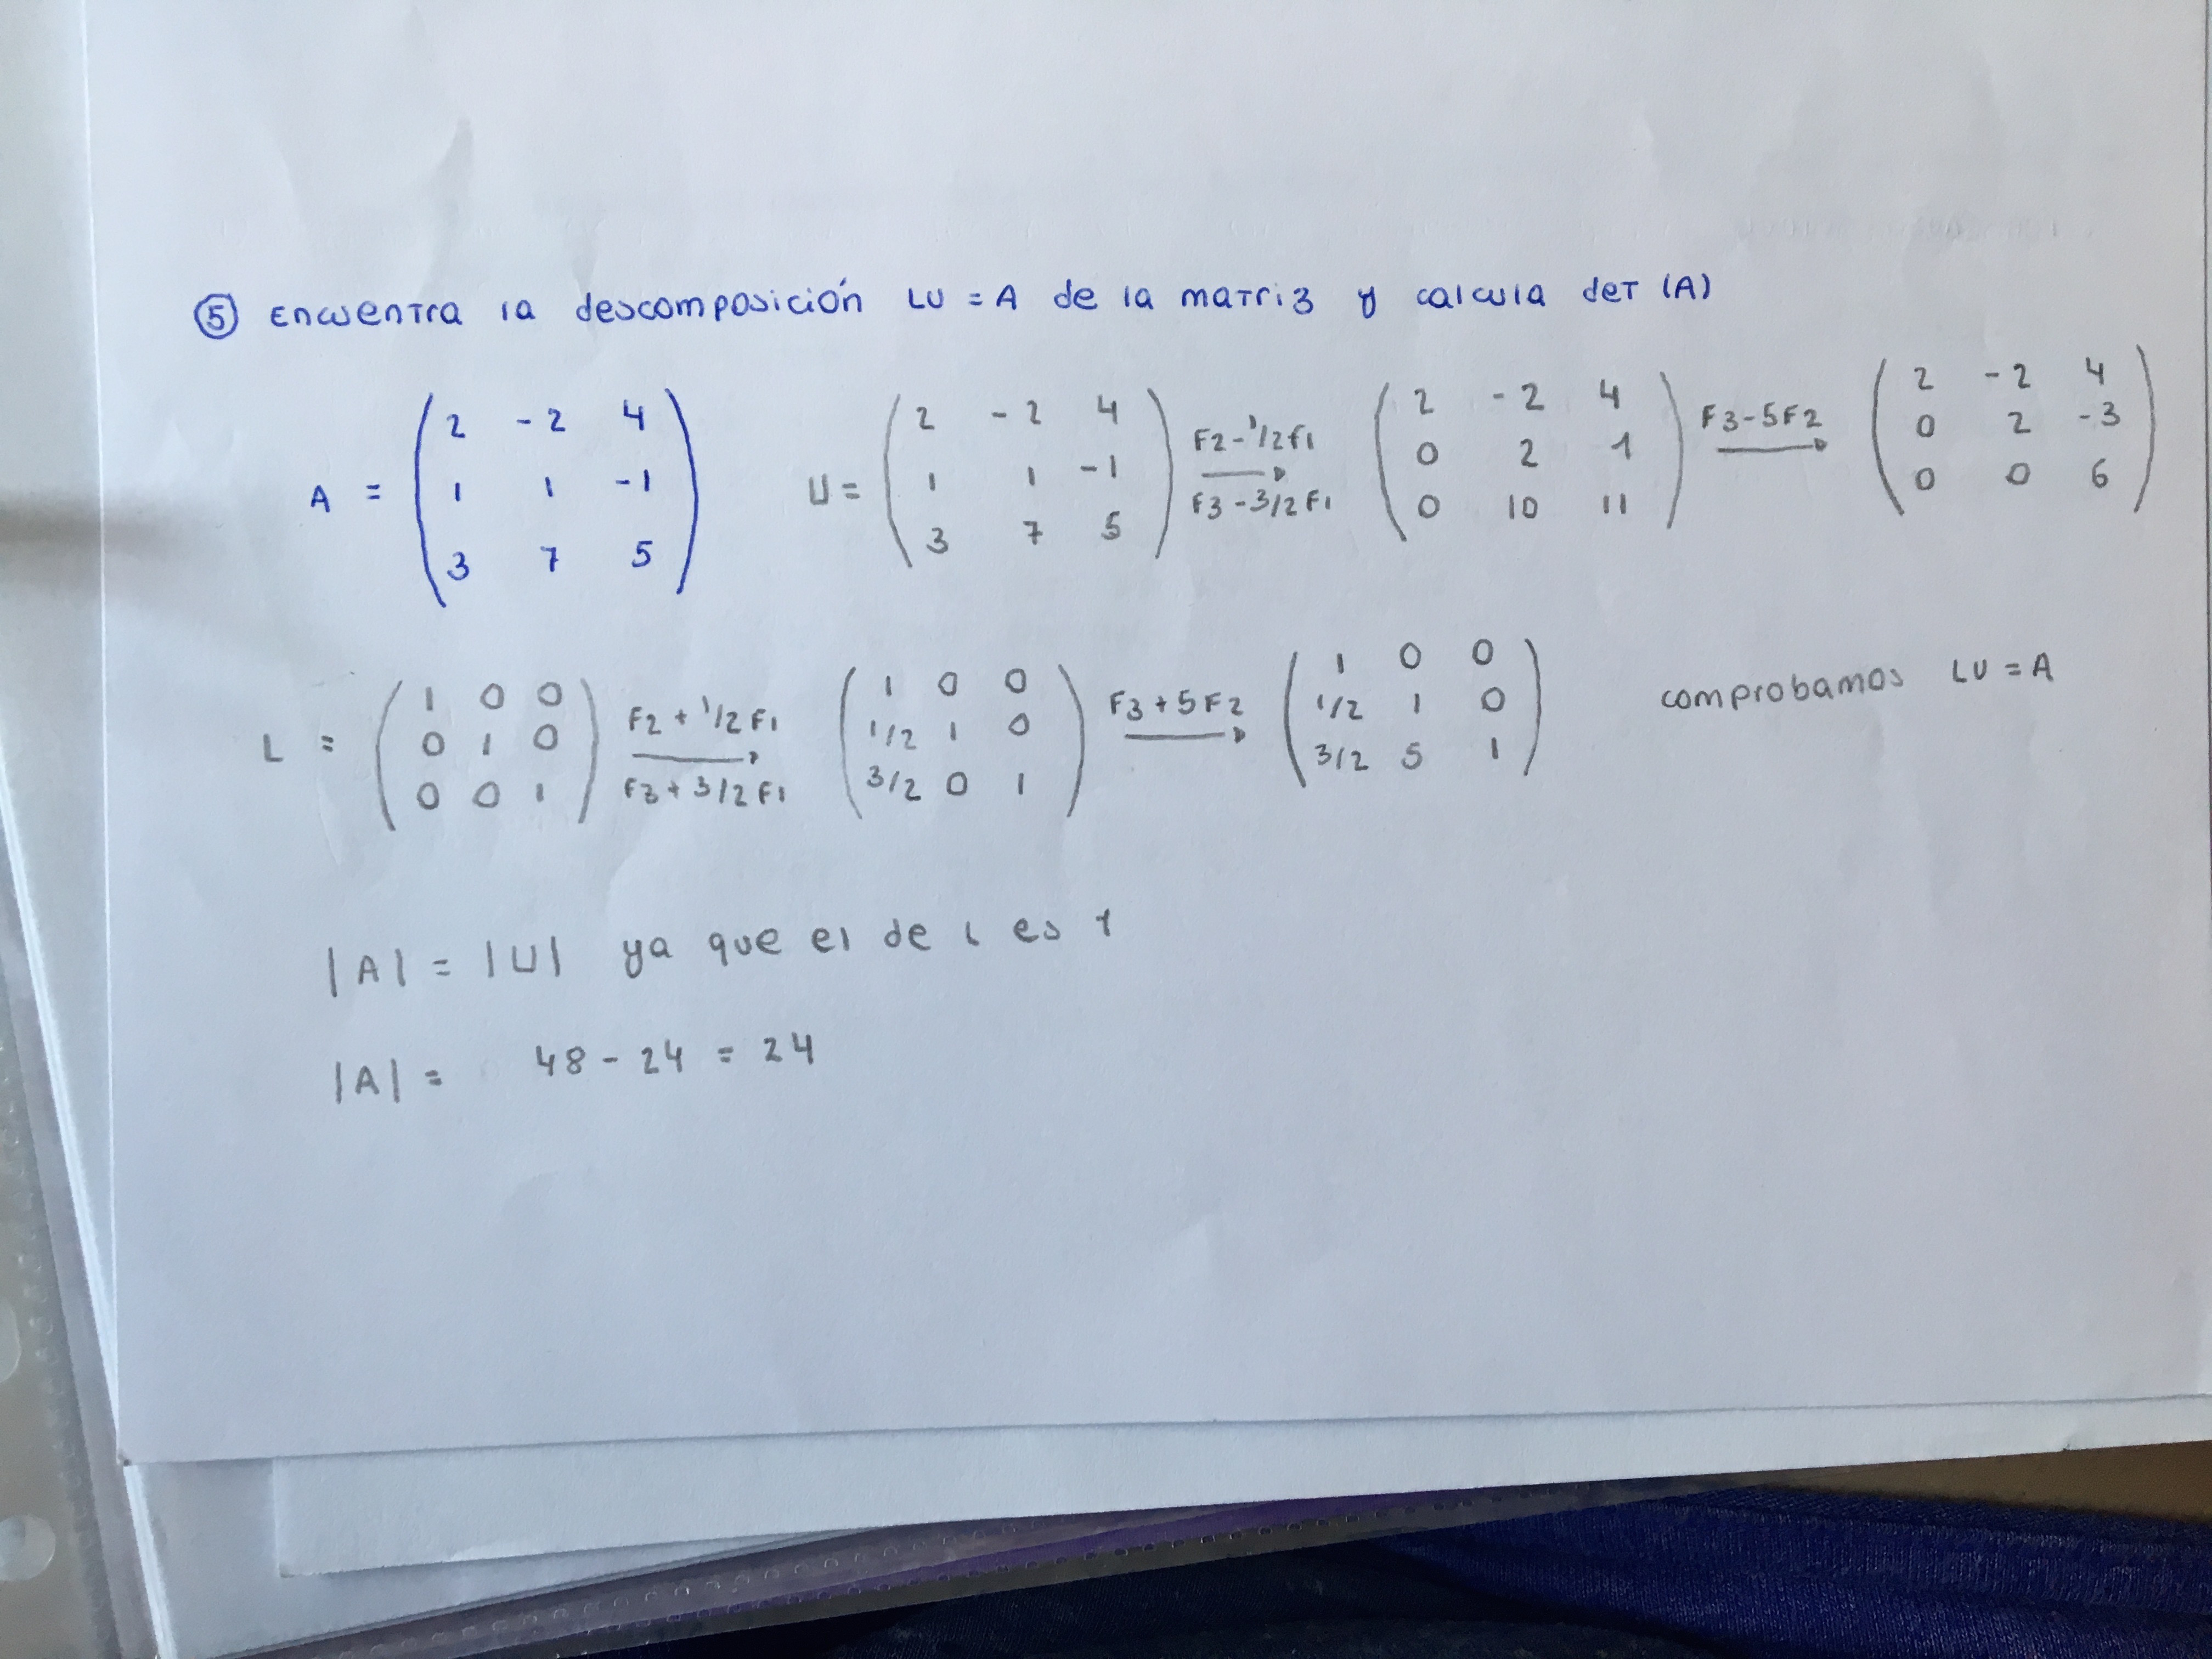 ⑤ Encuentra la descomposición LU = A de la matriz y calcula det (A)
A = ( 2 -2 4 ; 1 1 -1 ; 3 7 5 ) U = ( 2 -2 4 ; 1 1 -1 ; 3 7 5 ) F2-1/2f1 F3-3/2F1 → ( 2 -2 4 ; 0 2 1 ; 0 10 11 ) F3-5F2 → ( 2 -2 4 ; 0 2 -3 ; 0 0 6 )
L = ( 1 0 0 ; 0 1 0 ; 0 0 1 ) F2+1/2F1 F3+3/2F1 → ( 1 0 0 ; 1/2 1 0 ; 3/2 0 1 ) F3+5F2 → ( 1 0 0 ; 1/2 1 0 ; 3/2 5 1 ) comprobamos LU = A
|A| = |U| ya que el de L es 1
|A| = 48 - 24 = 24